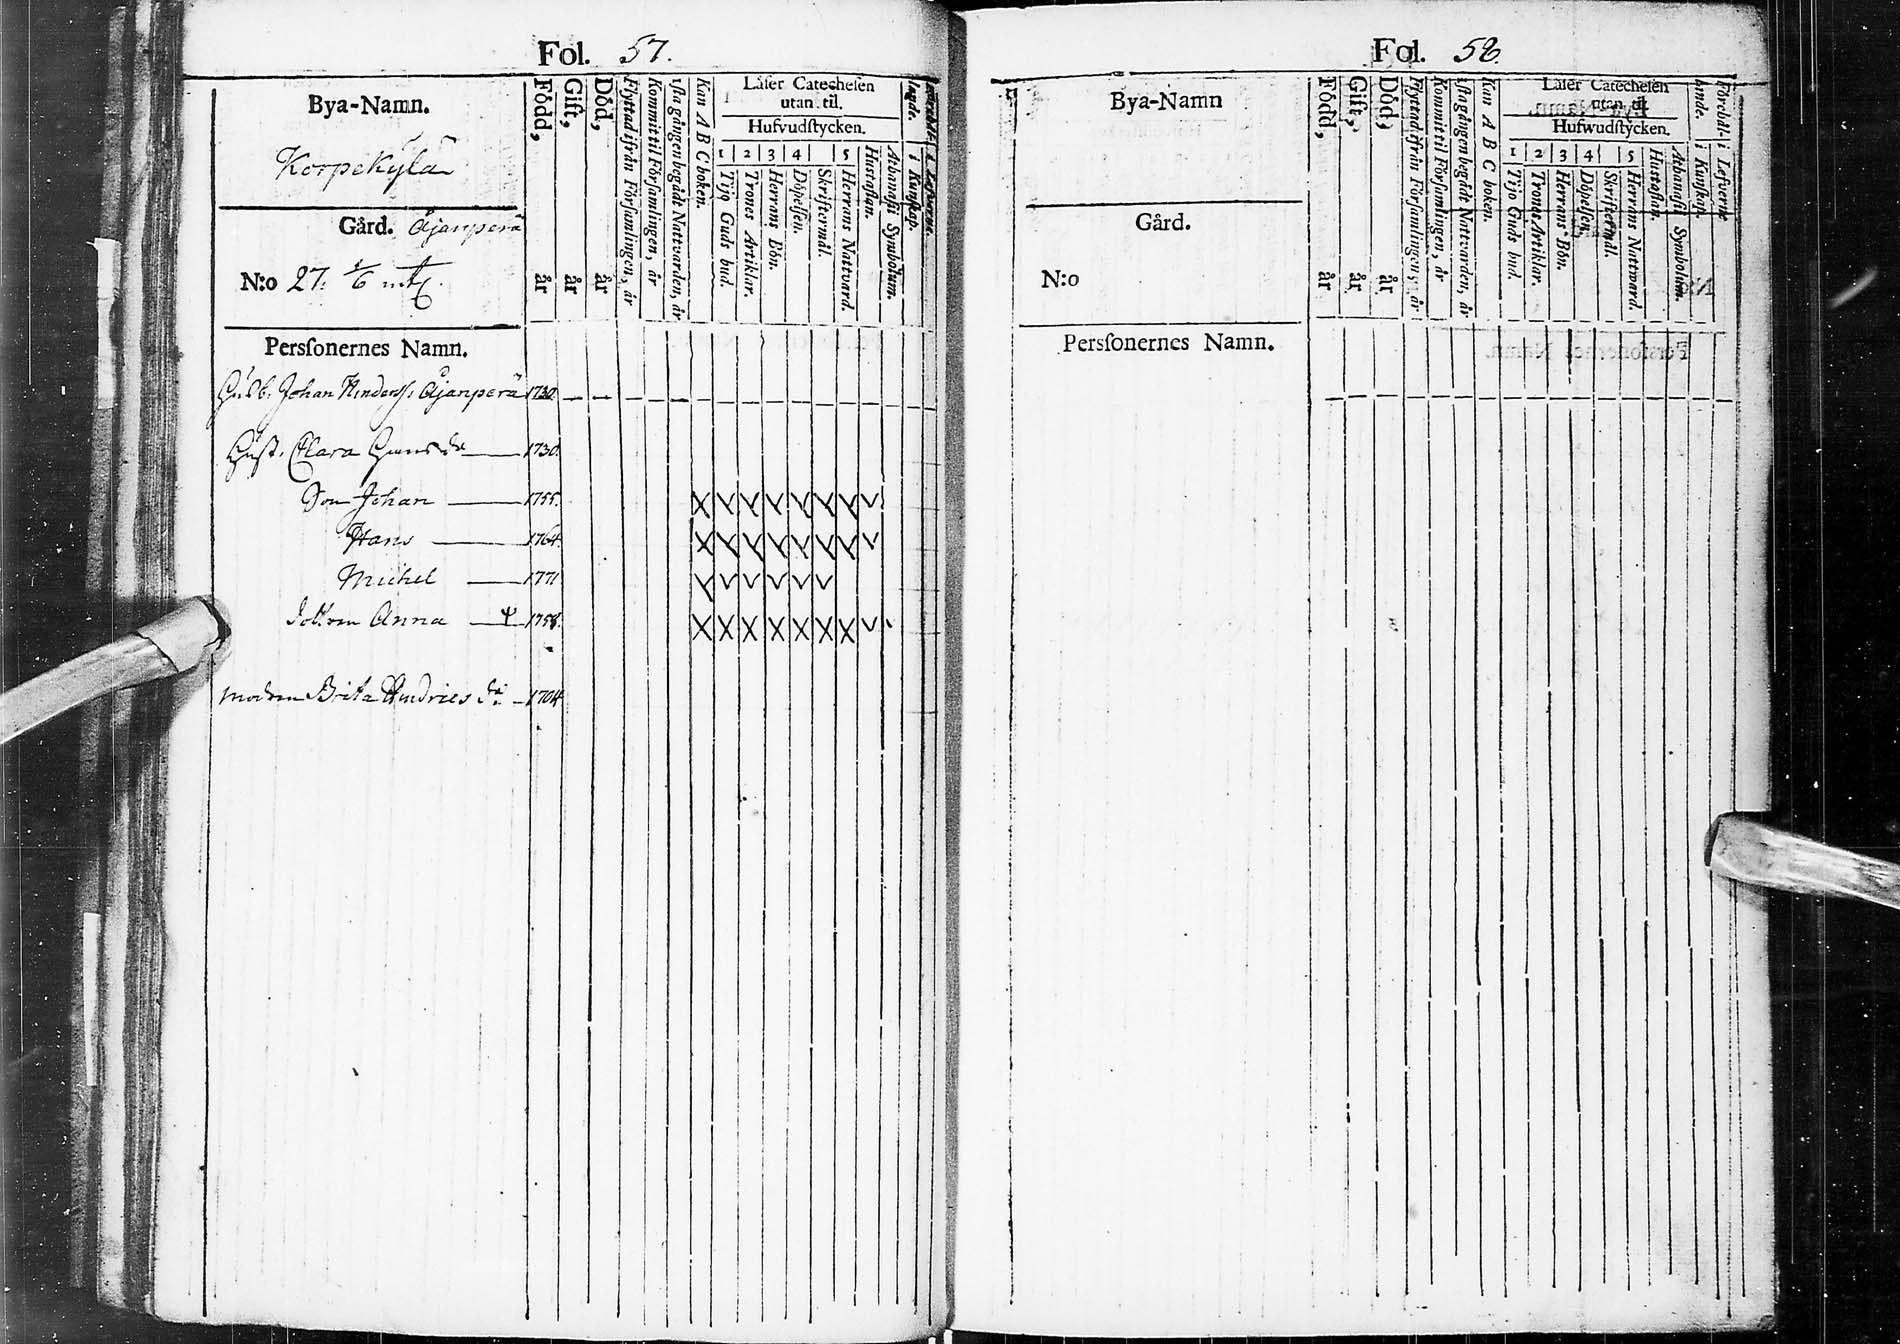 Fol. 57.
Bya-Namn.
Korpekylä
Gård. Åjanperä
N:o 27. 1/6 mtl.
Persſonernes Namn.
Född, år
Gift, år
Död, år
Flyttad ifrån Förſamlingen, år
Kommit til Förſamlingen, år
1ſta gången begådt Nattvarden, år
Kan A B C boken.
Läſer Catecheſen
utan til.
Hufvudſtycken.
1 2 3 4 5
Tijo Guds bud.
Trones Artiklar.
Herrans Bön.
Döpelſen.
Skriftermål.
Herrans Nattvard.
Huſtaflan.
Athanaſii Symbolum.
i Kunſkap.
Johan Anderſs: Åjanperä 1730.
Huſt. Clara 1730.
Son Johan 1755.
Hans 1764.
Michel 1771
Anna 1758.
Modren Brita Hindries dr 1704
Fol. 58.
Bya-Namn
Gård.
N:o
Persſonernes Namn.
Född, år
Gift, år
Död, år
Flyttad ifrån Förſamlingen, år
Kommit til Förſamlingen, år
1ſta gången begådt Nattvarden, år
Kan A B C boken.
Läſer Catecheſen
utan til.
Hufwudſtycken.
1 2 3 4 5
Tijo Guds bud.
Trones Artiklar.
Herrans Bön.
Döpelſen.
Skriftermål.
Herrans Nattward.
Huſtaflan.
Athanaſii Symbolum.
i Kunſkap.
i Lefverne